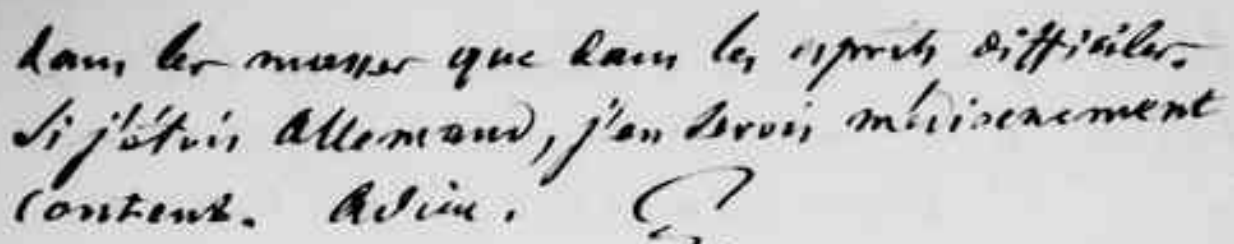 dans les masses que dans les esprits difficiles.
Si j'étois Allemand, j'en serois médiocrement
content. Adieu. G